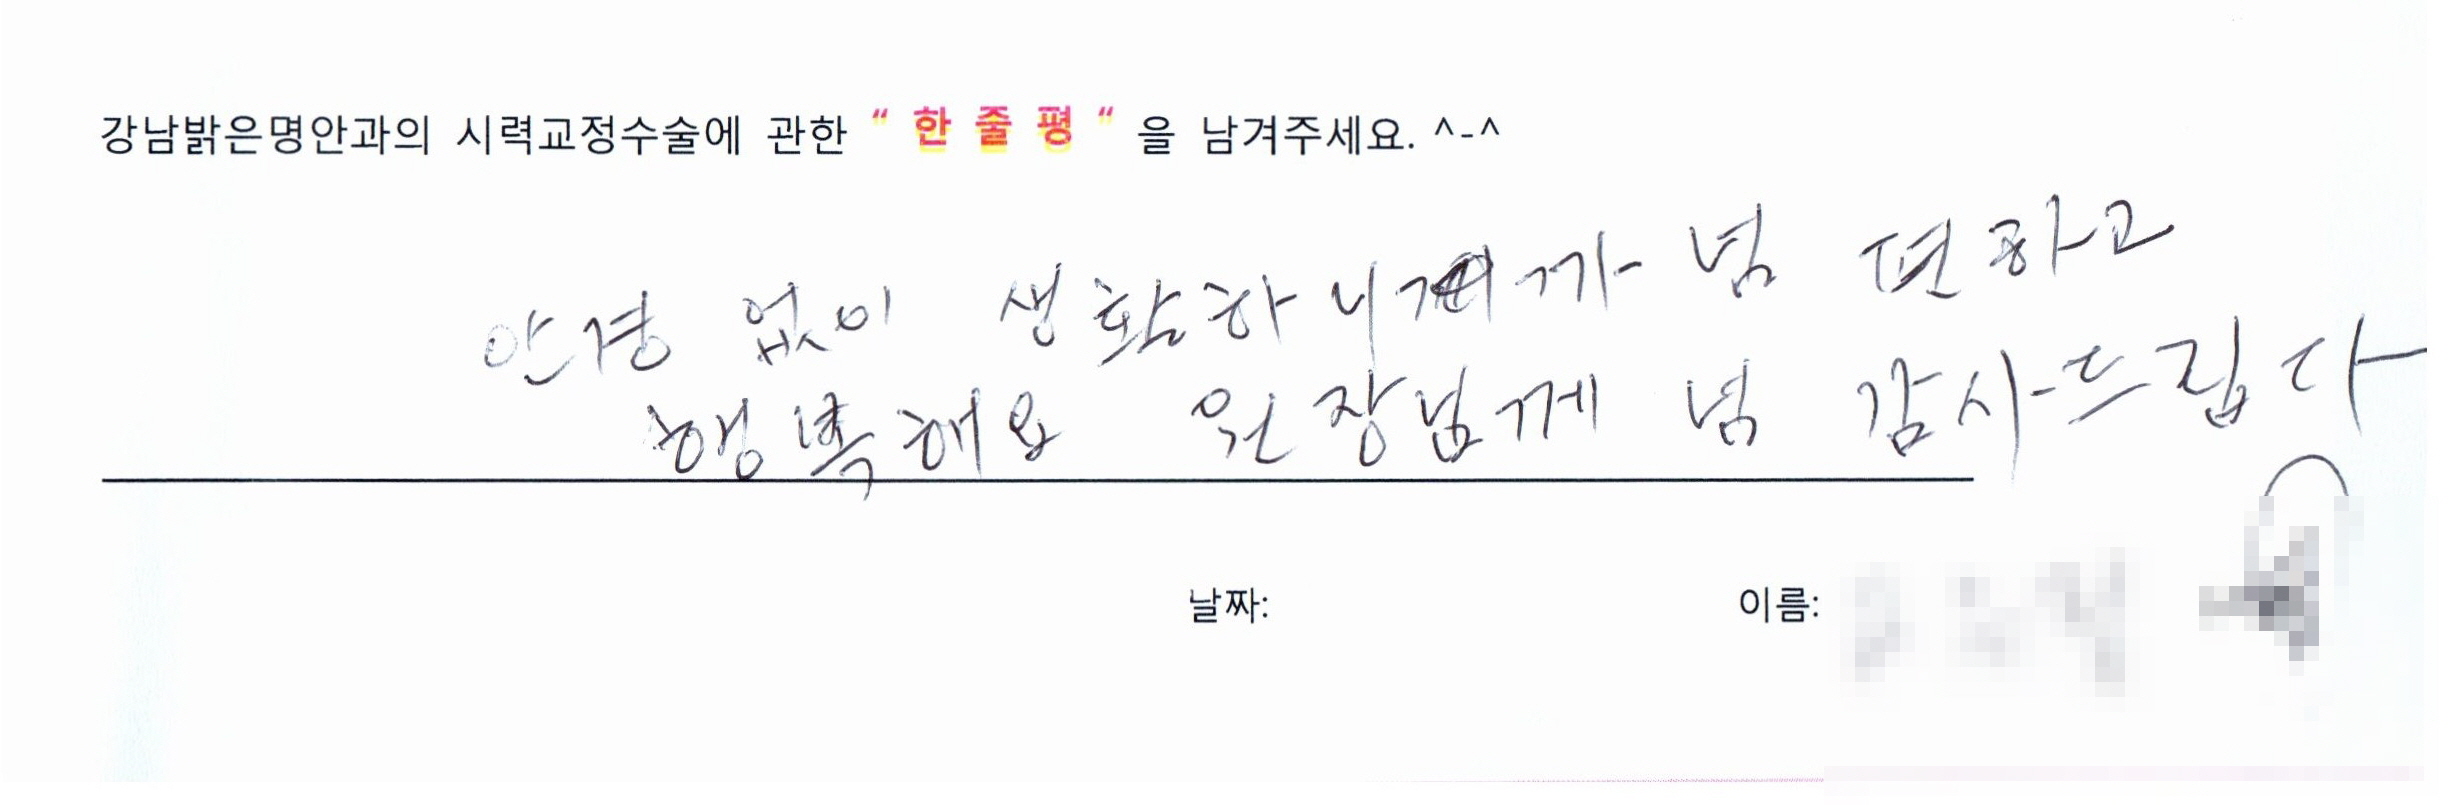 강남밝은명안과의 시력교정수술에 관한 “ 한 줄 평 “ 을 남겨주세요. ^-^
안경 없이 생활하니까 넘 편하고
행복해요 원장님께 넘 감사드립다
날짜: 이름: